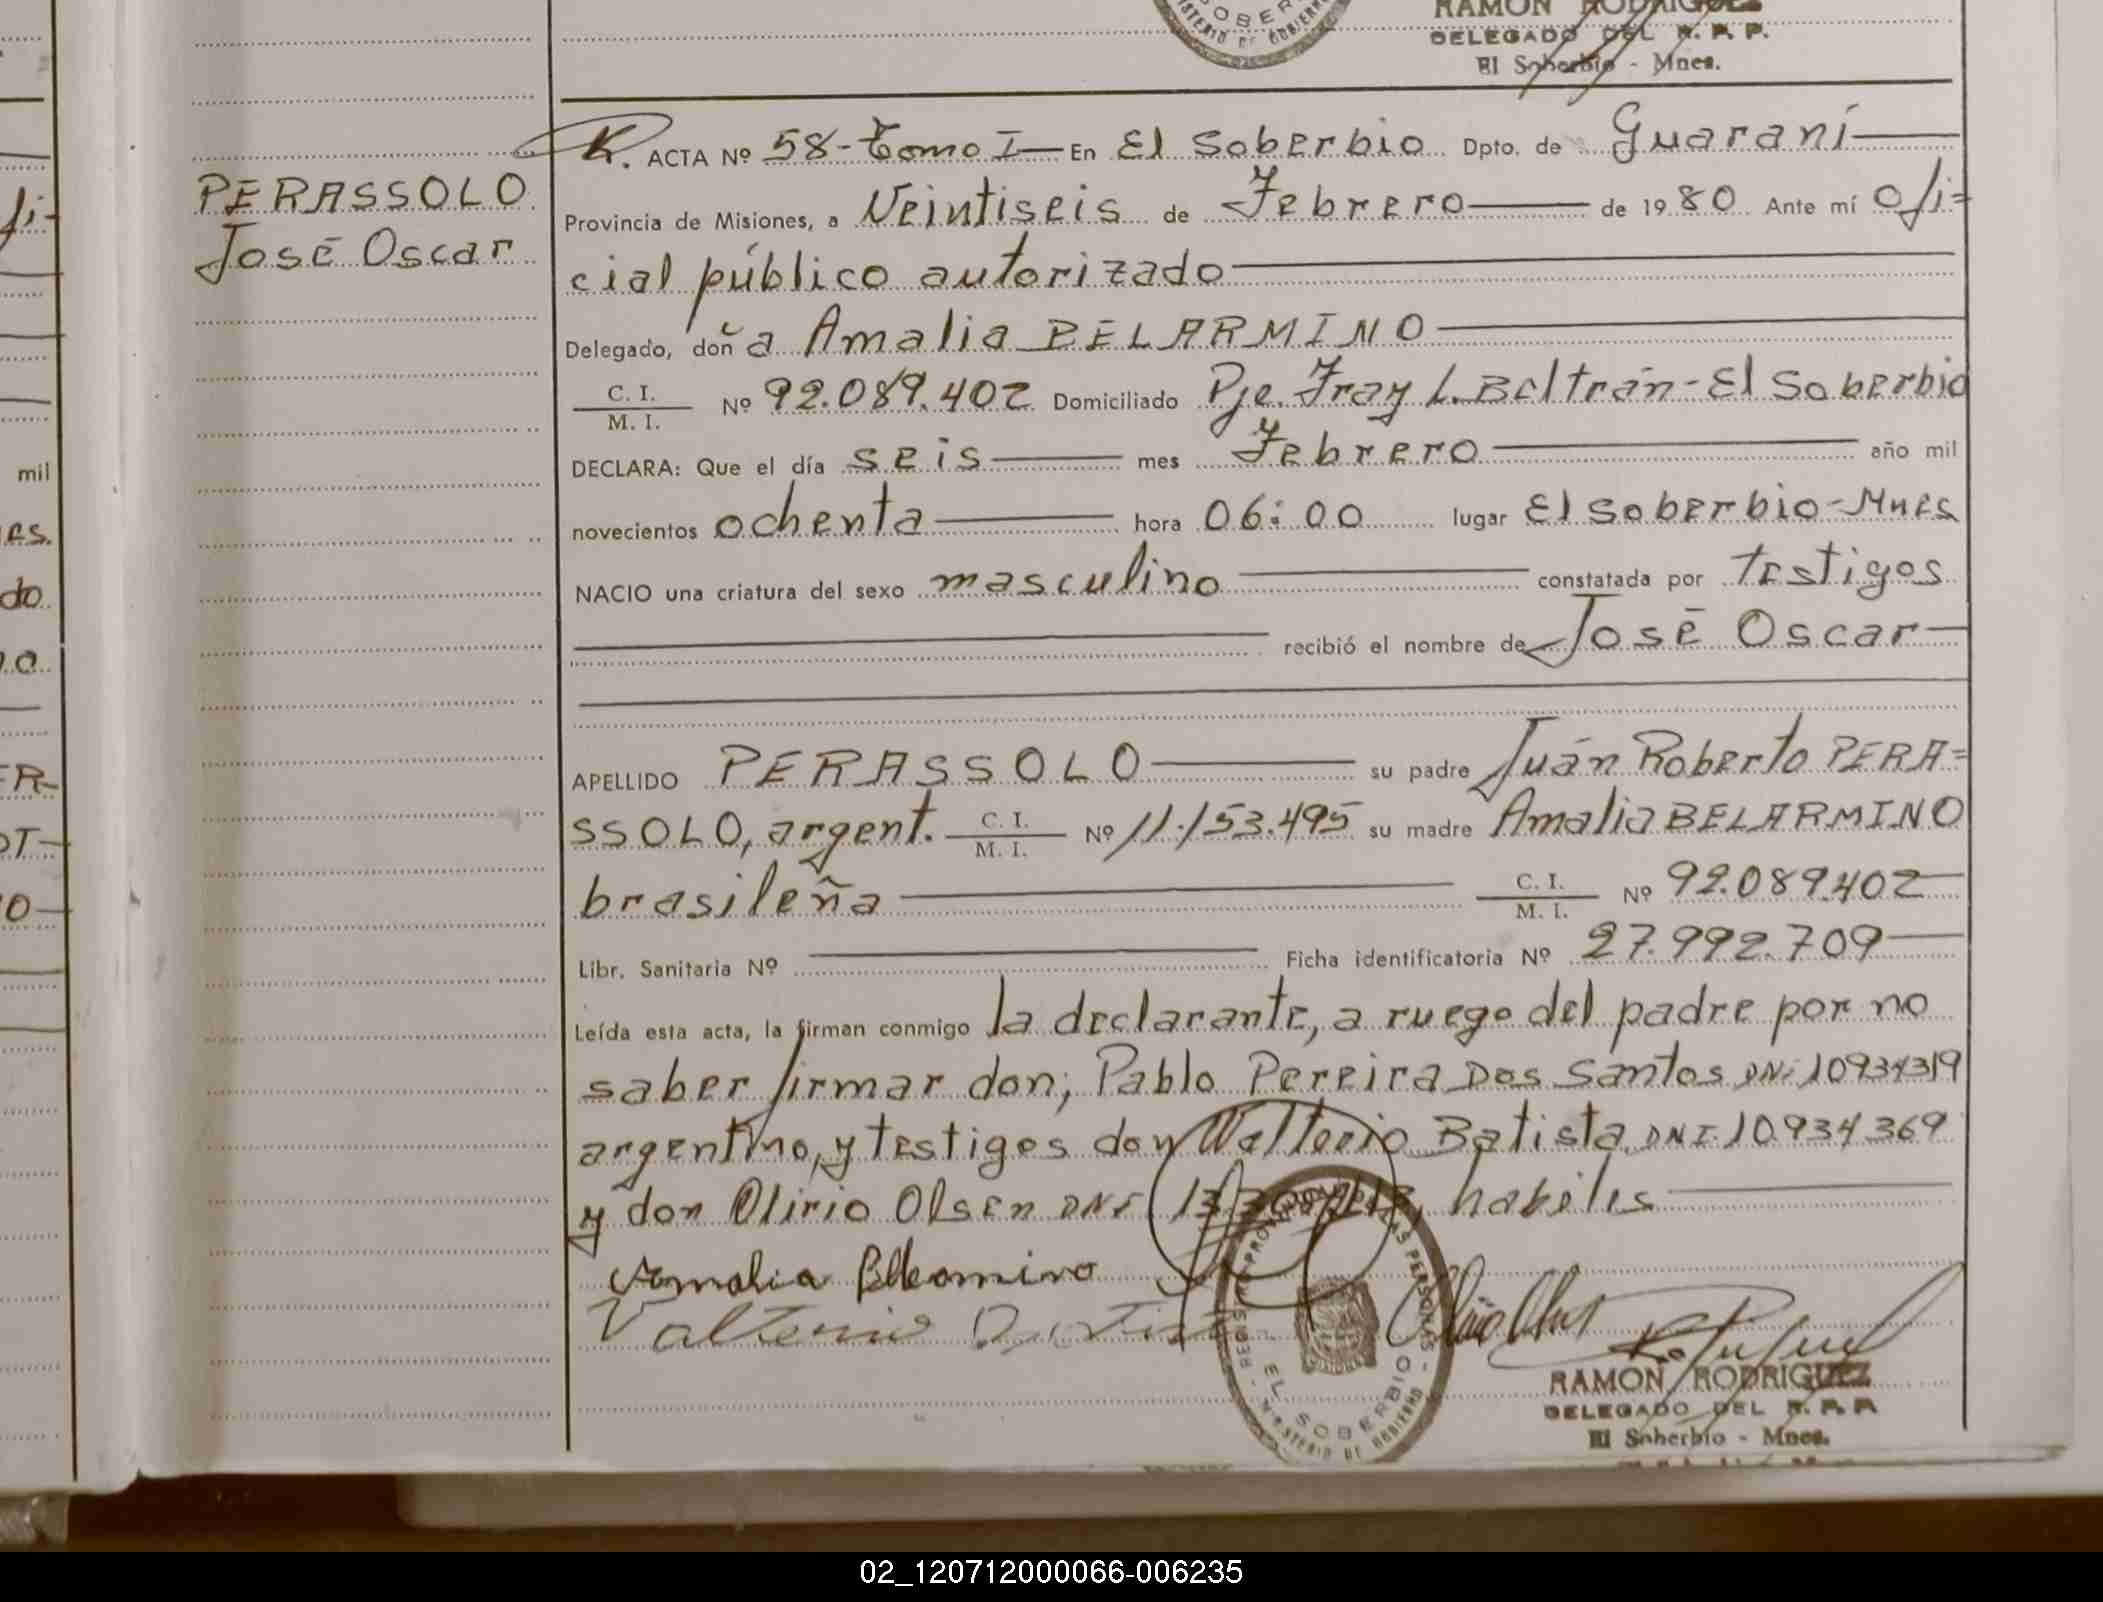 RAMON RODRIGUEZ
DELEGADO DEL R. P. P.
El Soberbio - Mnes.
PERASSOLO
José Oscar
ACTA Nº 58- Tomo I — En El Soberbio Dpto. de Guaraní
Provincia de Misiones, a Veintiseis de Febrero de 1980 Ante mí ofi=
cial público autorizado
Delegado, doña Amalia BELARMINO
C. I. / M. I. Nº 92.089.402 Domiciliado Pje. Fray L. Beltrán - El Soberbio
DECLARA: Que el día seis mes Febrero año mil
novecientos ochenta hora 06:00 lugar El Soberbio-Mnes
NACIO una criatura del sexo masculino constatada por testigos
recibió el nombre de José Oscar
APELLIDO PERASSOLO su padre Juán Roberto PERA=
SSOLO, argent. C. I. / M. I. Nº 11.153.495 su madre Amalia BELARMINO
brasileña C. I. / M. I. Nº 92.089.402
Libr. Sanitaria Nº Ficha identificatoria Nº 27.992.709
Leída esta acta, la firman conmigo la declarante, a ruego del padre por no
saber firmar don; Pablo Pereira Dos Santos DNI 10934319
argentino, y testigos don Walterio Batista DNI. 10.934369
y don Olirio Olsen DNI habiles
Amalia Belarmino
Valterio
EL SOBERBIO
MINISTERIO DE GOBIERNO
RAMON RODRIGUEZ
DELEGADO DEL R. P. P.
El Soberbio - Mnes.
02_120712000066-006235